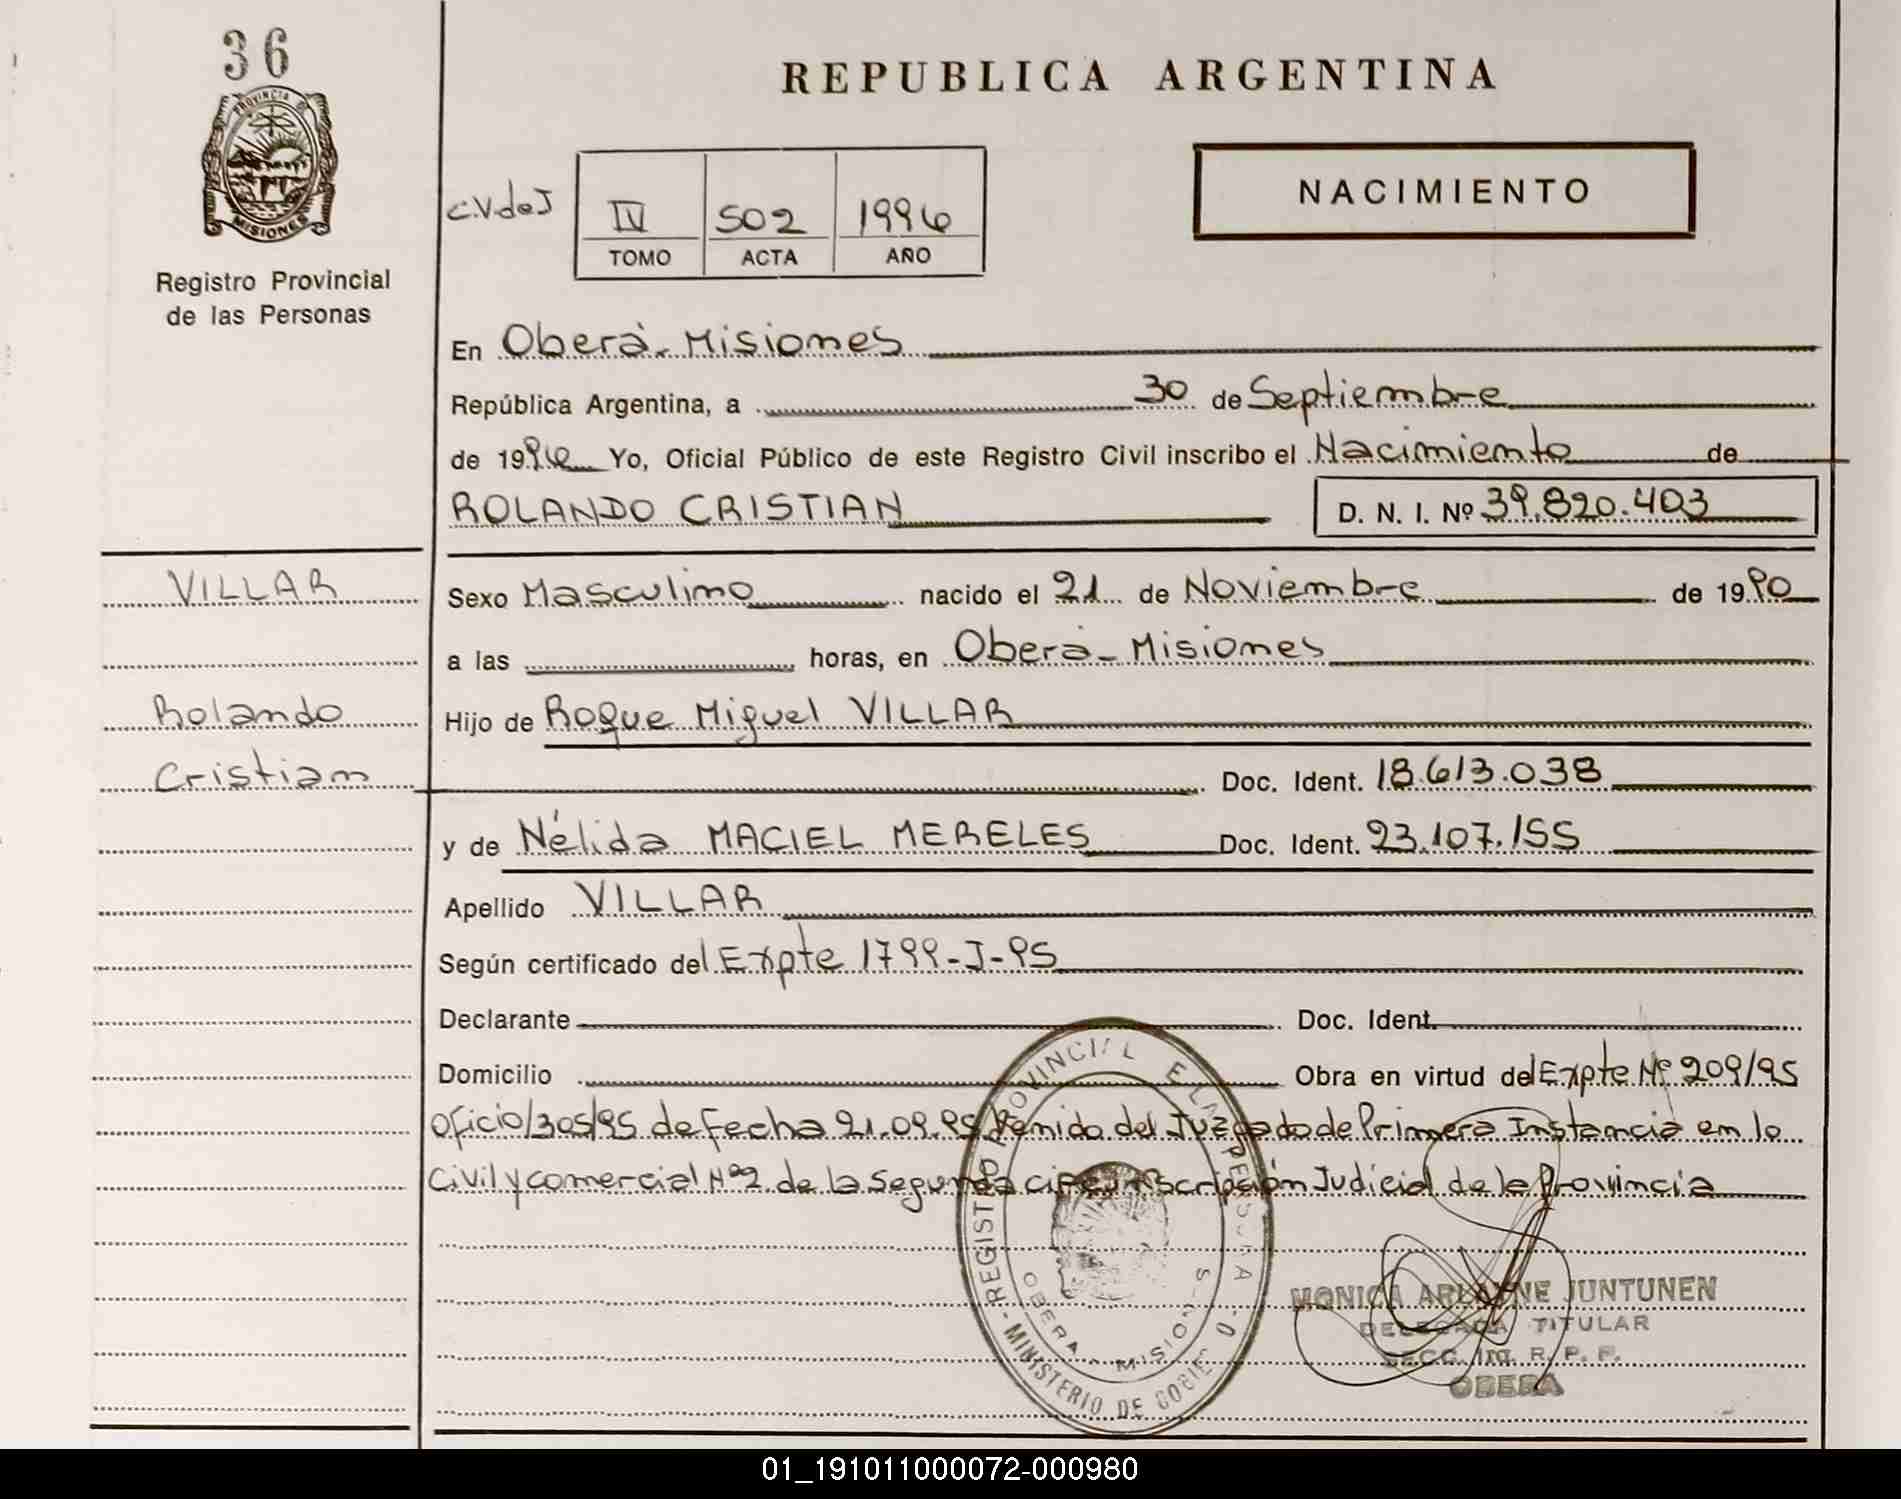 36
PROVINCIA D
MISIONES
Registro Provincial
de las Personas
REPUBLICA ARGENTINA
NACIMIENTO
C.V.deJ
IV 502 1996
TOMO ACTA AÑO
En Oberá - Misiones
República Argentina, a 30 de Septiembre
de 1996 Yo, Oficial Público de este Registro Civil inscribo el Nacimiento de
ROLANDO CRISTIAN D. N. I. Nº 39.820.403
VILLAR
Rolando
Cristian
Sexo Masculino nacido el 21 de Noviembre de 1990
a las horas, en Oberá - Misiones
Hijo de Roque Miguel VILLAR
Doc. Ident. 18.613.038
y de Nélida MACIEL MERELES Doc. Ident. 23.107.155
Apellido VILLAR
Según certificado del Expte 1799-J-95
Declarante Doc. Ident.
Domicilio Obra en virtud del Expte Nº 209/95
Oficio/305/95 de Fecha 21.09.95 Venido del Juzgado de Primera Instancia en lo
Civil y comercial Nº2 de la Segunda circunscripción Judicial de la Provincia
REGISTRO PROVINCIAL E LA PERSONA
OBERA - MISIONES
MINISTERIO DE GOBIE
MONICA JUNTUNEN
DELEGADA TITULAR
SECC. R. P. P.
OBERA
01_191011000072-000980